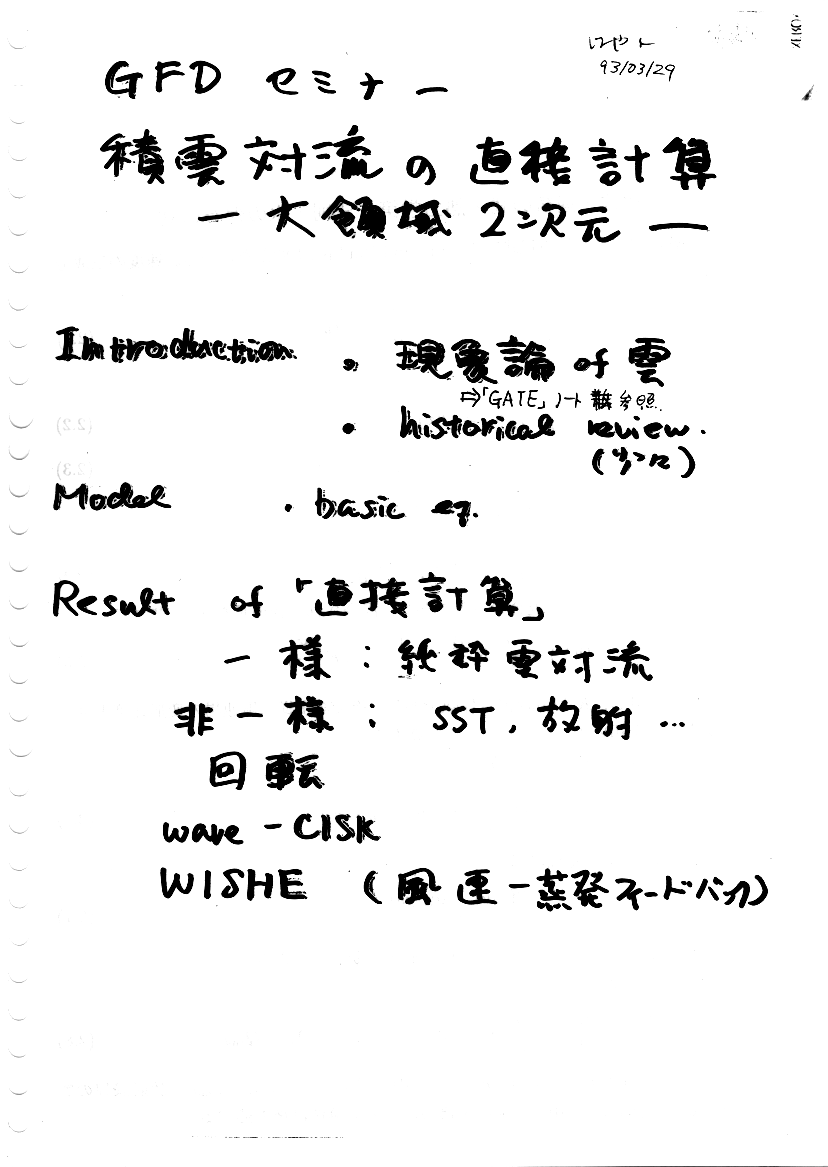 93/03/29
GFD セミナー
積雲対流の直接計算
— 大領域 2次元 —
Introduction ・ 現象論 of 雲
⇨「GATE」ノート 参照
・ historical review.
(少々)
Model ・ basic eq.
Result of 「直接計算」
一様 : 純粋雲対流
非一様 : SST, 放射 …
回転
wave - CISK
WISHE (風速-蒸発フィードバック)